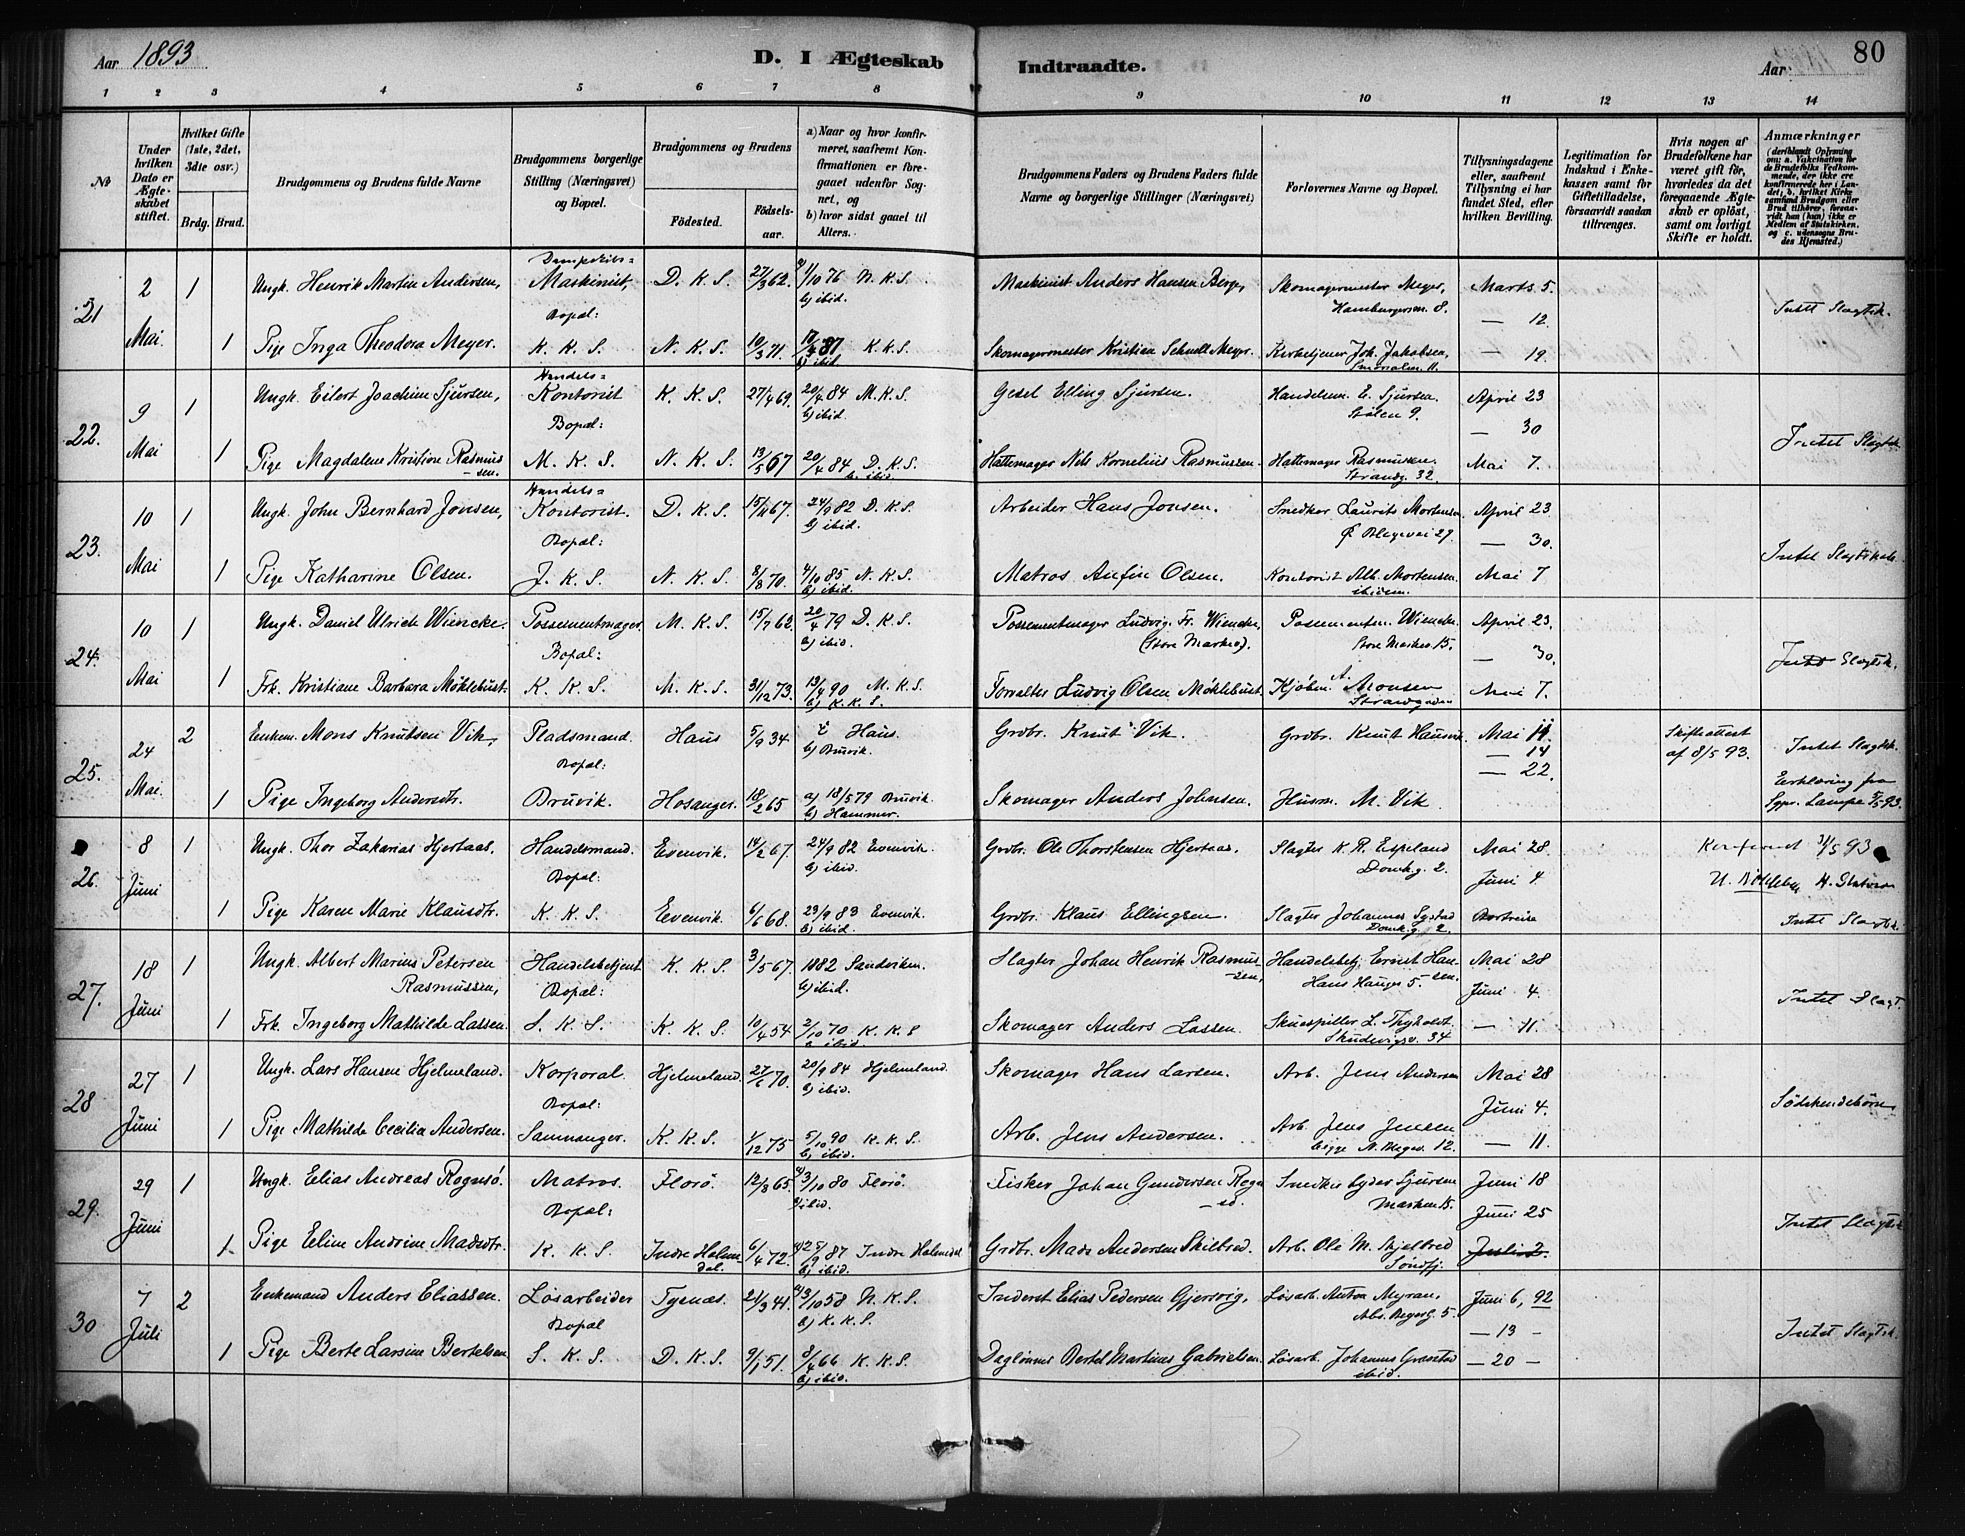 Aar 1893
D. I Ægteskab Indtraadte.
Aar
80
1 2 3 4 5 6 7 8 9 10 11 12 13 14
No
Under hvilken Dato er Ægteskabet stiftet.
Hvilket Gifte (1ste, 2det, 3die osv.)
Brdg. Brud.
Brudgommens og Brudens fulde Navne
Brudgommens borgerlige Stilling (Næringsvei) og Bopæl.
Brudgommens og Brudens
Födested.
Födsels-aar.
a) Naar og hvor konfirmeret, saafremt Konfirmationen er foregaaet udenfor Sognet, og
b) hvor sidst gaaet til Alters.
Brudgommens Faders og Brudens Faders fulde Navne og borgerlige Stillinger (Næringsvei)
Forlovernes Navne og Bopæl.
Tillysningsdagene eller, saafremt Tillysning ei har fundet Sted, efter hvilken Bevilling.
Legitimation for Indskud i Enkekassen samt for Giftetilladelse, forsaavidt saadan tiltrænges.
Hvis nogen af Brudefolkene har været gift för, hvorledes da det foregaaende Ægteskab er oplöst, samt om lovligt Skifte er holdt.
Anmærkninger
21 2 Mai 1 Ungk. Henrik Martin Andersen, Maskinist, Bopæl: D. K. S. 27/3 62. 1/10 76 N. K. S. b) ibid. Maskinist Anders Hansen Berge, Skomagermester Meyer, Hamburgersm. 8. Marts 5. — 12. Intet Slagtsk.
1 Pige Inga Theodora Meyer. K. K. S. N. K. S. 10/3 71. 87 K. K. S. b) ibid. Skomagermester Kristian Schnell Meyer. Kirketjener Joh. Jakobsen, — 19.
22. 9 Mai 1 Ungk. Eilert Joachim Sjursen, Handels= Kontorist Bopæl: K. K. S. 27/4 69. 20/4 84 M. K. S. b) ibid. Gesel Elling Sjursen. Handelsm. E. Sjursen Stølen 9. April 23 — 30 Intet Slagtsk.
1 Pige Magdalene Kristine Rasmussen. M. K. S. N. K. S. 13/5 67 20/4 84 D. K. S. b. ibid. Hattemager Nils Kornelius Rasmussen. Hattemager Rasmussen. Strandg. 32. Mai 7.
23. 10 Mai 1 Ungk. John Bernhard Jonsen, Handels= Kontorist. Bopæl: D. K. S. 15/11 67. 24/9 82 D. K. S. b) ibid. Arbeider Hans Jonsen. Snedker Laurits Mortensen Ø. Blegevei 27. April 23 — 30. Intet Slagtskab
1 Pige Katharine Olsen. J. K. S. N. K. S. 8/8 70. 4/10 85 N. K. S. b) ibid. Matros Anfin Olsen. Kontorist Alb. Mortensen. ibidem. Mai 7
24. 10 Mai 1 Ungk. Daniel Ulrich Wiencke. Possementmager. Bopæl: M. K. S. 15/7 62. 20/4 79 D. K. S. b) ibid. Possementmager Ludvig Fr. Wiencke, (Store Marken). Possementm. Wiencke. Store Marken 15. April 23. — 30. Intet Slagtsk.
1 Frk. Kristiane Barbara Møklebust. K. K. S. M. K. S. 31/12 73. 13/4 90 M. K. S. b) K. K. S. Forvalter Ludvig Olsen Møklebust. Kjøbm. A. Monsen Strandgaden Mai 7.
25. 24 Mai. 2 Enkem. Mons Knutsen Vik, Pladsmand. Bopæl: Haus 5/9 34 Haus. b) Bruvik. Grdbr. Knut Vik. Grdbr. Knut Hausvik. Mai 11. — 14 — 22. Skifteattest af 8/5 93. Intet Slagtsk.
1 Pige Ingeborg Andersdtr. Bruvik. Hosanger. 18/2 65 a) 18/5 79 Bruvik. b) Hammer. Skomager Anders Johnsen. Husm. M. Vik Erklæring fra
26. 8 Juni 1 Ungk. Thor Zakarias Hjertaas. Handelsmand. Bopæl: Evenvik. 14/2 67. 24/9 82 Evenvik. b) ibid. Grdbr. Ole Thorstensen Hjertaas. Slagter K. R. Espeland Domkg. 2. Mai 28. Juni 4
1 Pige Karen Marie Klausdtr. K. K. S. Evenvik. 6/6 68. 23/9 83 Evenvik. b) ibid. Grdbr. Klaus Ellingsen. Slagter Johannes Systad Domkg. 2. Bortreise Intet Slagtsk.
27. 18 Juni 1 Ungk. Albert Marius Petersen Rasmussen, Handelsbetjent Bopæl: K. K. S. 3/5 67. 1882 Sandviken. b) ibid. Slagter Johan Henrik Rasmussen, Handelsbetj. Ernst Hansen. Hans Hauges 5. Mai 28 Juni 4. Intet Slagt.
1 Frk. Ingeborg Mathilde Lassen. S. K. S. K. K. S. 10/4 54 2/10 70 K. K. S ibid. Skomager Anders Lassen. Skuespiller L. Thyholdt. Skudevigsv. 34 — 11.
28 27 Juni 1 Ungk. Lars Hansen Hjelmeland. Korporal. Bopæl: Hjelmeland. 27/6 70. 20/9 84 Hjelmeland. b) ibid. Skomager Hans Larsen. Arb. Jens Andersen Mai 28 Juni 4. Södskendebörn
1 Pige Mathilde Cecilia Andersen. Samnanger. K. K. S. 1/12 75 5/10 90 K. K. S. b) ibid. Arb. Jens Andersen. Arb. Jens Jensen begge N. Blegev. 12. — 11.
29. 29 Juni 1 Ungk. Elias Andreas Rognsö. Matros. Bopæl: Florö. 12/8 65. 3/10 80 Florö. b) ibid. Fisker Johan Gundersen Rogn Snedker Lyder Sjursen Marken 15. Juni 18 Juni 25 Intet Slagtsk
1 Pige Eline Andrine Madsdtr. K. K. S. Indre Holmedal. 6/4 72. 25/9 87 Indre Holmedal b) ibid. Grdbr. Mads Andersen Skilbred. Arb. Ole M. Skjelbred Söndfj. Juli 2.
30 7 Juli 2 Enkemand Anders Eliassen. Løsarbeider Bopæl Tysnæs. 21/3 41. 3/10 58 N. K. S. b) K. K. S. Inderst Elias Pedersen Gjersvig, Løsarb. Anton Myran, Juni 6, 92 — 13 — Intet Slagtsk.
1 Pige Berte Larsine Bertelsen. S. K. S. D. K. S. 9/1 51. 8/4 66 K. K. S. b) ibid. Daglønner Bertel Martinus Gabrielsen. Løsarb. Johannes ibid. — 20 —